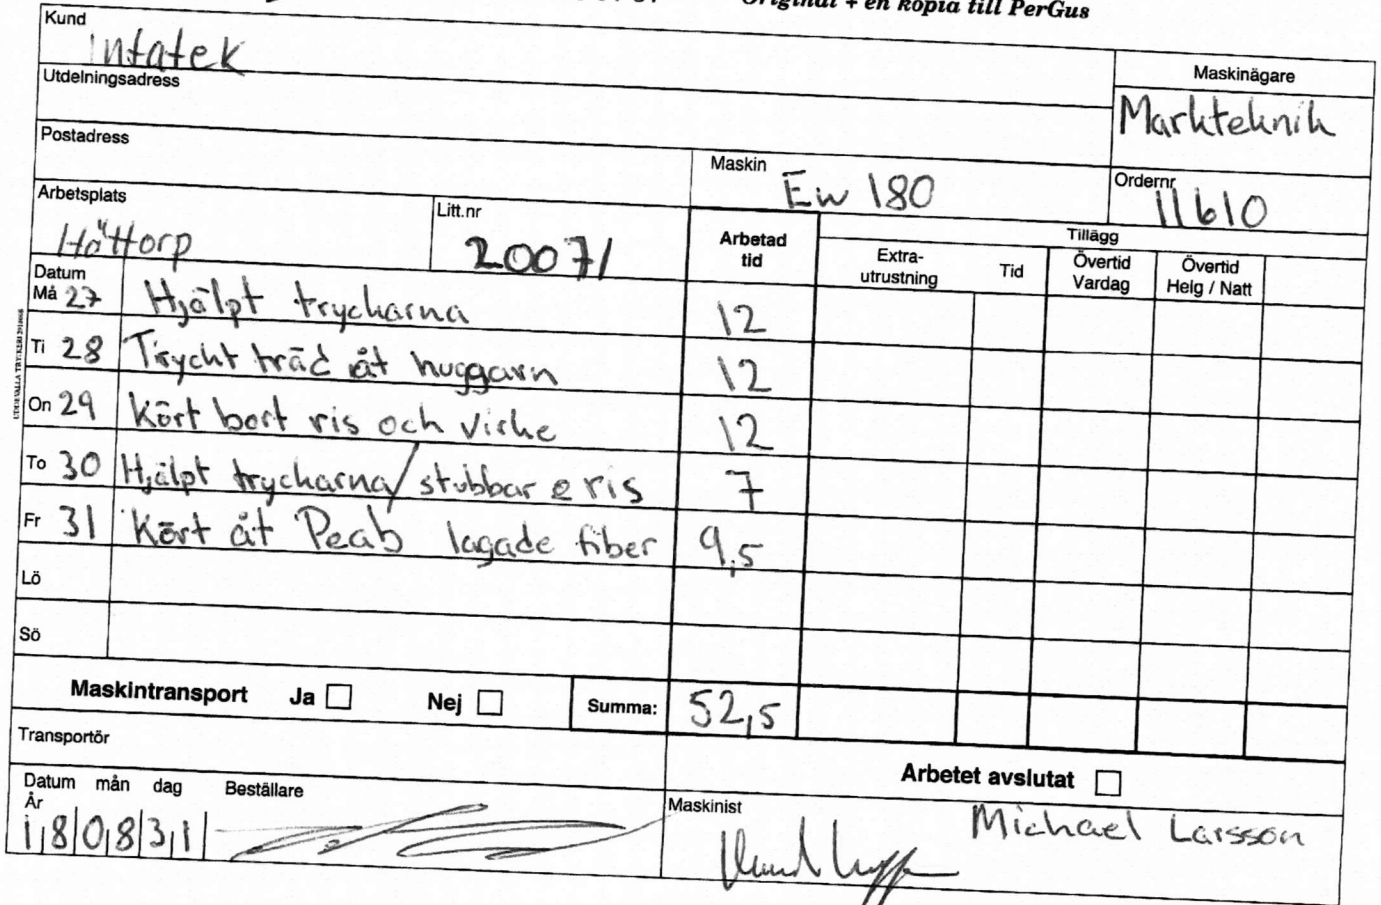 Original + en kopia till PerGus
Kund
Intatek
Maskinägare
Markteknik
Utdelningsadress
Postadress
Maskin
Ew 180
Ordernr
11610
Arbetsplats
Håttorp
Litt.nr
20071
Arbetad tid
Tillägg
Extra-utrustning
Tid
Övertid Vardag
Övertid Helg / Natt
Datum
Må 27 Hjälpt tryckarna 12
Ti 28 Tryckt träd åt huggarn 12
On 29 Kört bort ris och virke 12
To 30 Hjälpt tryckarna/stubbar o ris 7
Fr 31 Kört åt Peab lagade fiber 9,5
Lö
Sö
Maskintransport Ja Nej Summa: 52,5
Transportör
Arbetet avslutat
Datum mån dag Beställare
År
180831
Maskinist
Michael Larsson